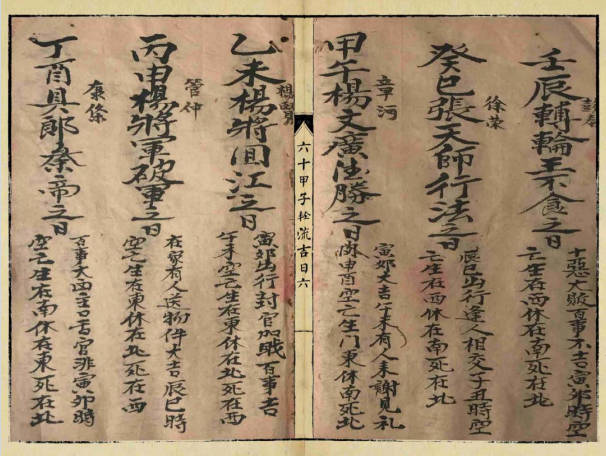 壬辰輔輪王不食之日
十惡大敗百事不吉寅卯時空
亡生在西休在南死在北
徐荣
癸巳張天師行法之日
辰巳出行逢人相交子丑時空
亡生在西休在南死在北
章河
甲午楊文廣得勝之日
寅卯大吉午未有人来謝見礼
申酉空亡生門東休南死北
六十甲子 流吉日六
楊
乙未楊將回江之日
寅卯出行封官加戢百事吉
午未空亡生在東休在北死在西
管仲
丙申楊將軍破軍之日
在家有人送物件大吉辰巳時
空亡生在東休在北死在西
康條
丁酉具郎蔡帝之日
百事大凶主口舌官非寅卯時
空亡生在南休在東死在北